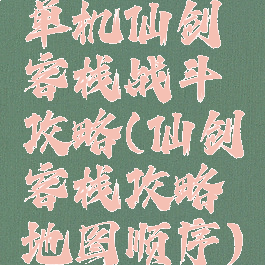 单机仙创
客栈战斗
攻略(仙创
客栈攻略
地图顺序)